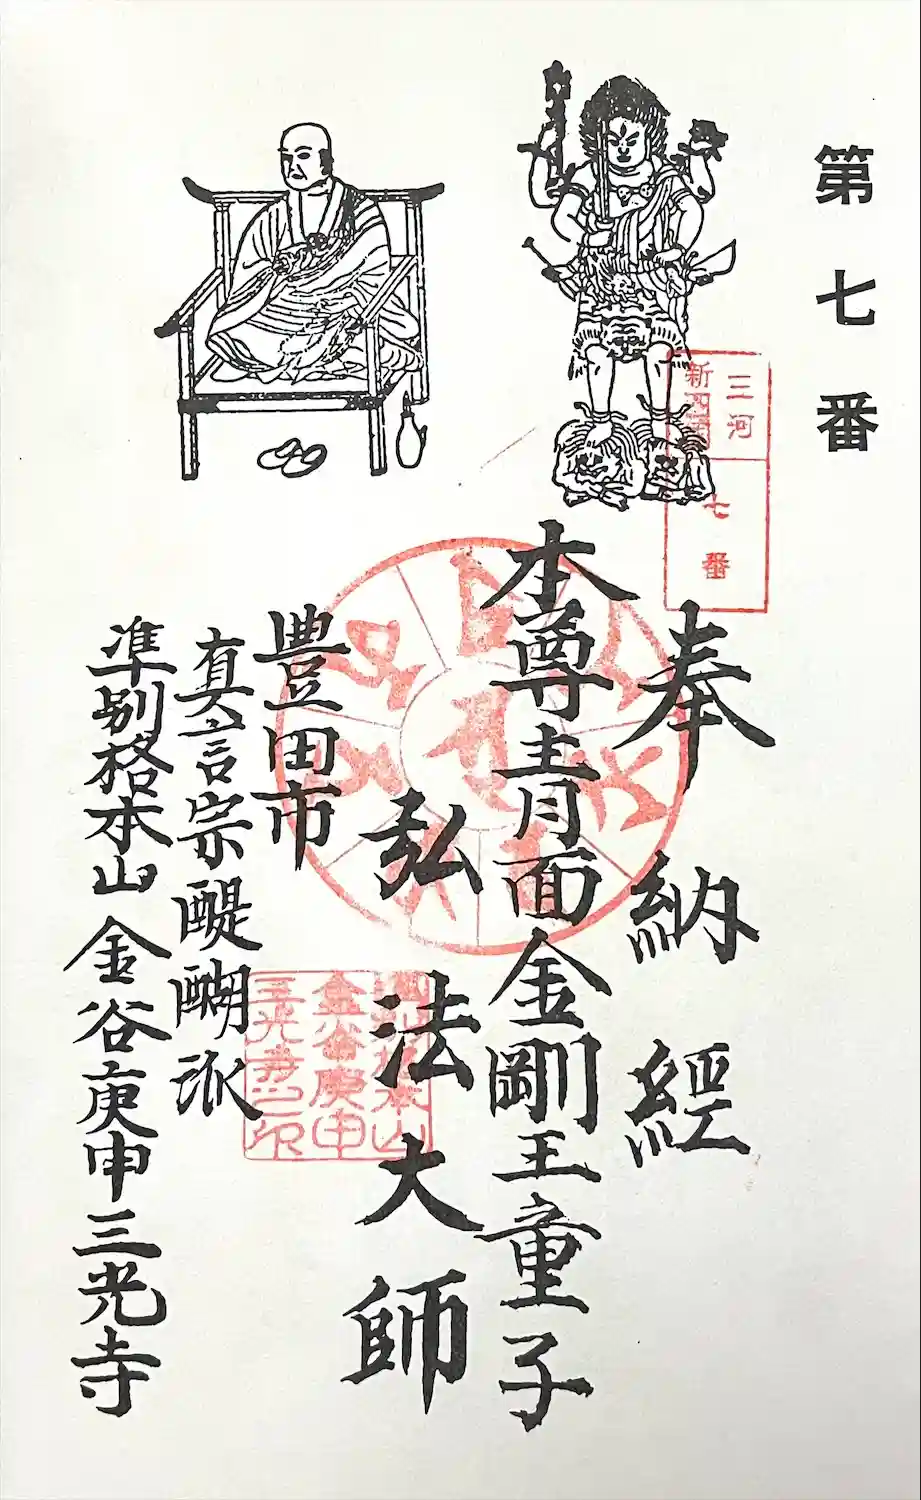 第七番
三河
新四国
七番
奉納經
本尊青面金剛王童子
弘法大師
豊田市
真言宗醍醐派
準別格本山 金谷庚申三光寺
金谷庚申
三光寺之印